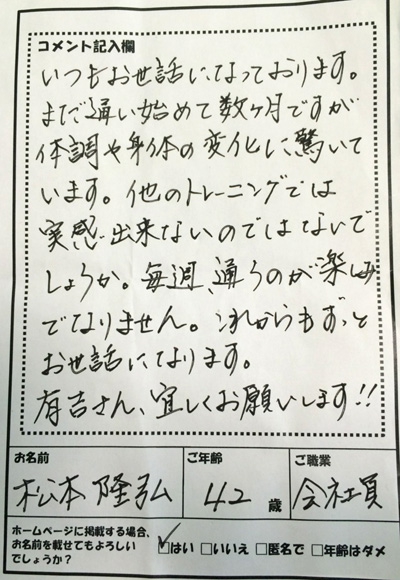 コメント記入欄
いつもお世話になっております。
まだ通い始めて数ヶ月ですが
体調や身体の変化に驚いて
います。他のトレーニングでは
実感出来ないのではないで
しょうか。毎週、通うのが楽しみ
でなりません。これからもずっと
お世話になります。
有吉さん、宜しくお願いします!!
お名前 ご年齢 ご職業
松本 隆弘 42歳 会社員
ホームページに掲載する場合、
お名前を載せてもよろしい
でしょうか? ☑はい □いいえ □匿名で □年齢はダメ